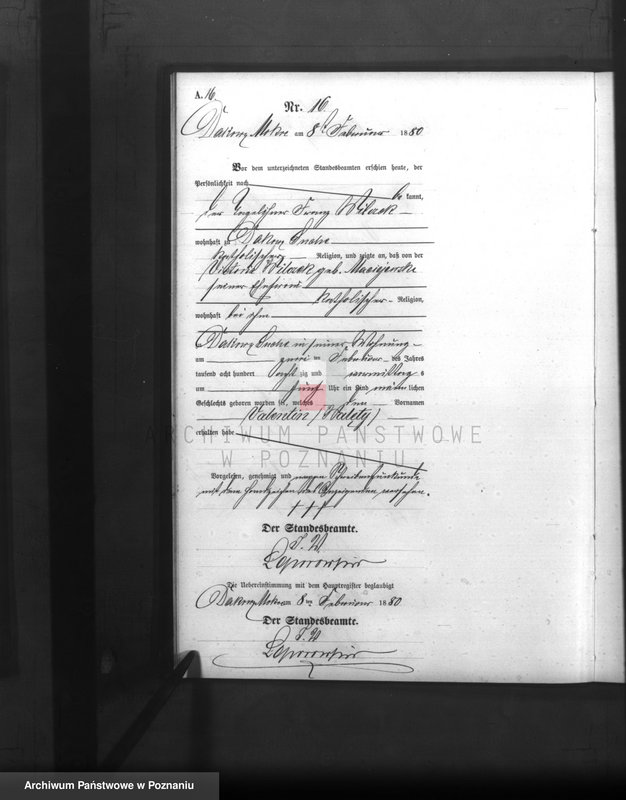 A. 16
Nr. 16.
Dakowy Mokre am 8 Februar 1880
Vor dem unterzeichneten Standesbeamten erschien heute, der
Persönlichkeit nach
be kannt,
der Tagelöhner Franz Wilczak
wohnhaft zu Dakowy Suche
katholischer Religion, und zeigte an, daß von der
Wilczak geb. Maciejewska
seiner Ehefrau
katholischer Religion,
wohnhaft bei ihm
Dakowy Suche in seiner Wohnung
am zwei ten Februar des Jahres
tausend acht hundert acht zig und Vormittag s
um fünf Uhr ein Kind männlichen
Geschlechts geboren worden sei, welches den Vornamen
Valentin (Walenty)
erhalten habe
Vorgelesen, genehmigt und wegen Schreibensunkunde
mit dem Handzeichen des Anzeigenden versehen.
† † †
Der Standesbeamte.
Die Uebereinstimmung mit dem Hauptregister beglaubigt
Dakowy Mokre am 8 ten Februar 1880
Der Standesbeamte.
ARCHIWUM PAŃSTWOWE
W POZNANIU
Archiwum Państwowe w Poznaniu